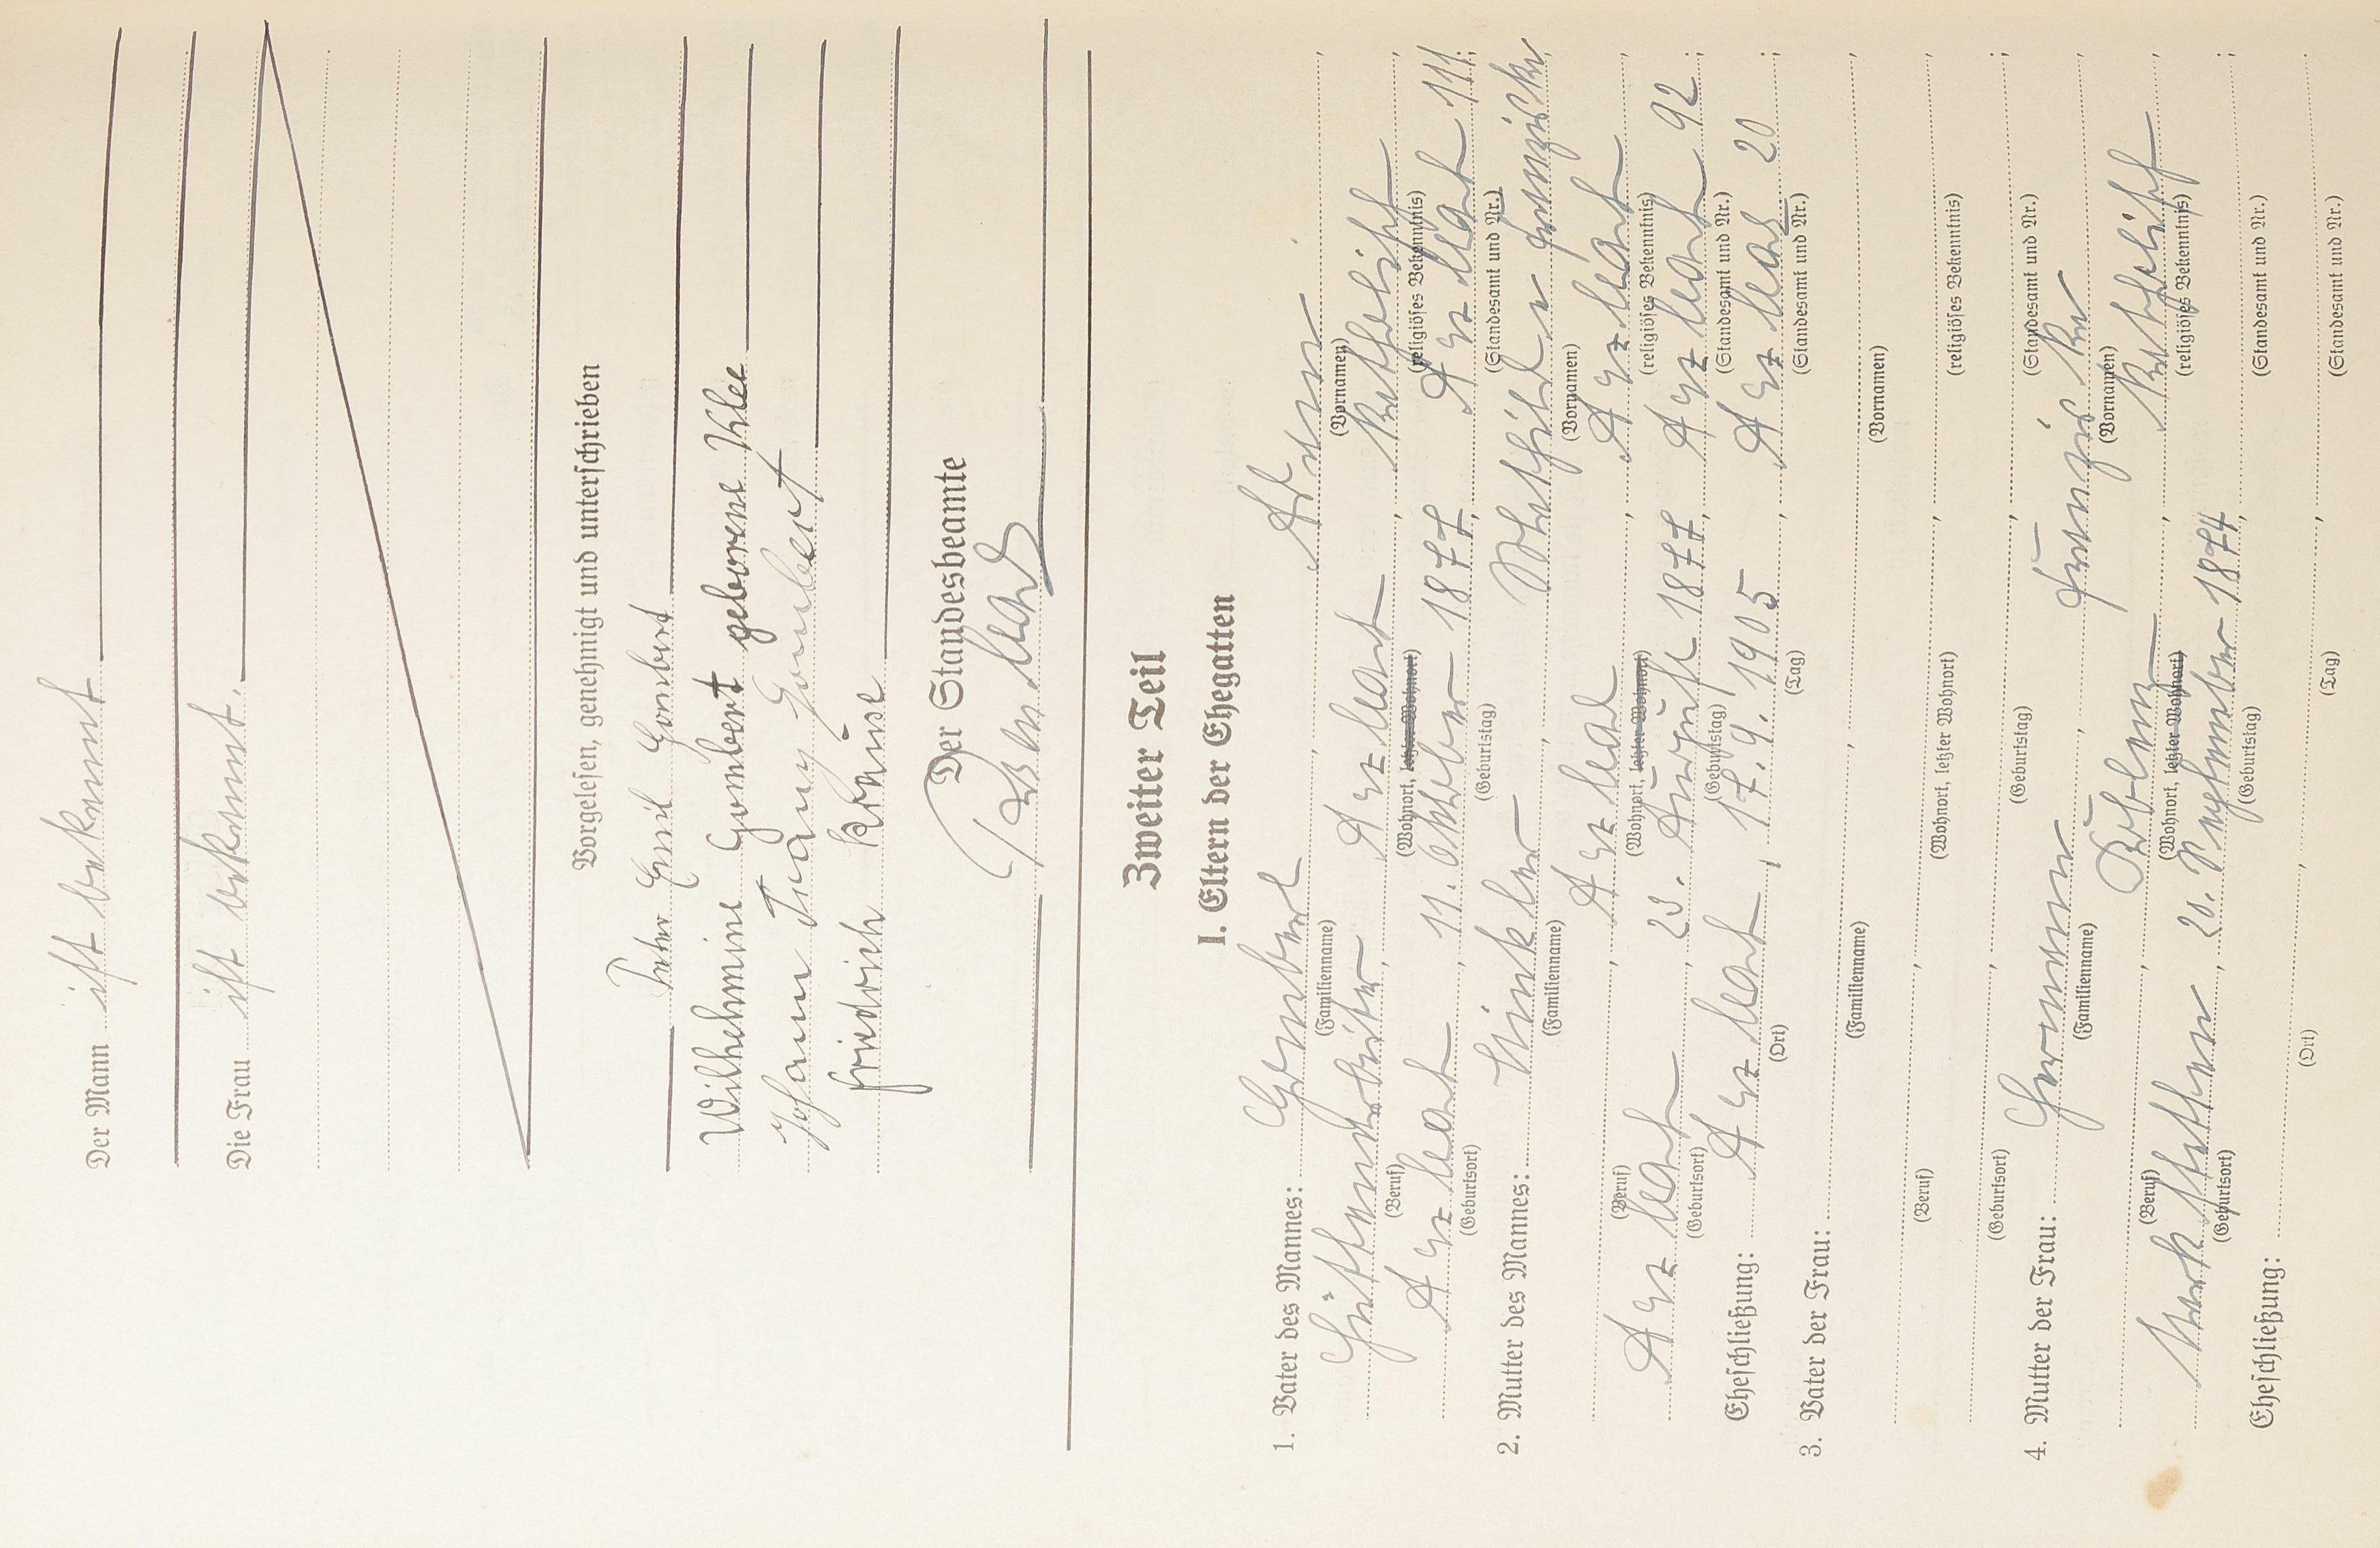 Der Mann ist bekannt
Die Frau ist bekannt.
Vorgelesen, genehmigt und unterschrieben
Peter Emil Gombert
Wilhelmine Gombert geborene Klee
Johann Franz Gombert
Friedrich Krause
Der Standesbeamte
Zweiter Teil
I. Eltern der Ehegatten
1. Vater des Mannes: Gombert, Adam
(Familienname) (Vornamen)
Hüttenarbeiter, Arzbach, katholisch,
(Beruf) (Wohnort, letzter Wohnort) (religiöses Bekenntnis)
Arzbach, 11. Oktober 1877, Arzbach 111;
(Geburtsort) (Geburtstag) (Standesamt und Nr.)
2. Mutter des Mannes: Winkler, Mathilde Franziska,
(Familienname) (Vornamen)
Arzbach,
(Beruf) (Wohnort, letzter Wohnort) (religiöses Bekenntnis)
Arzbach, 23. August 1877, Arzbach 92;
(Geburtsort) (Geburtstag) (Standesamt und Nr.)
Eheschließung: Arzbach, 17.9.1905, Arzbach 20;
(Ort) (Tag) (Standesamt und Nr.)
3. Vater der Frau:
(Familienname) (Vornamen)
(Beruf) (Wohnort, letzter Wohnort) (religiöses Bekenntnis)
(Geburtsort) (Geburtstag) (Standesamt und Nr.)
4. Mutter der Frau: Hermann, Franziska,
(Familienname) (Vornamen)
Koblenz, katholisch,
(Beruf) (Wohnort, letzter Wohnort) (religiöses Bekenntnis)
20. September 1874,
(Geburtsort) (Geburtstag) (Standesamt und Nr.)
Eheschließung:
(Ort) (Tag) (Standesamt und Nr.)